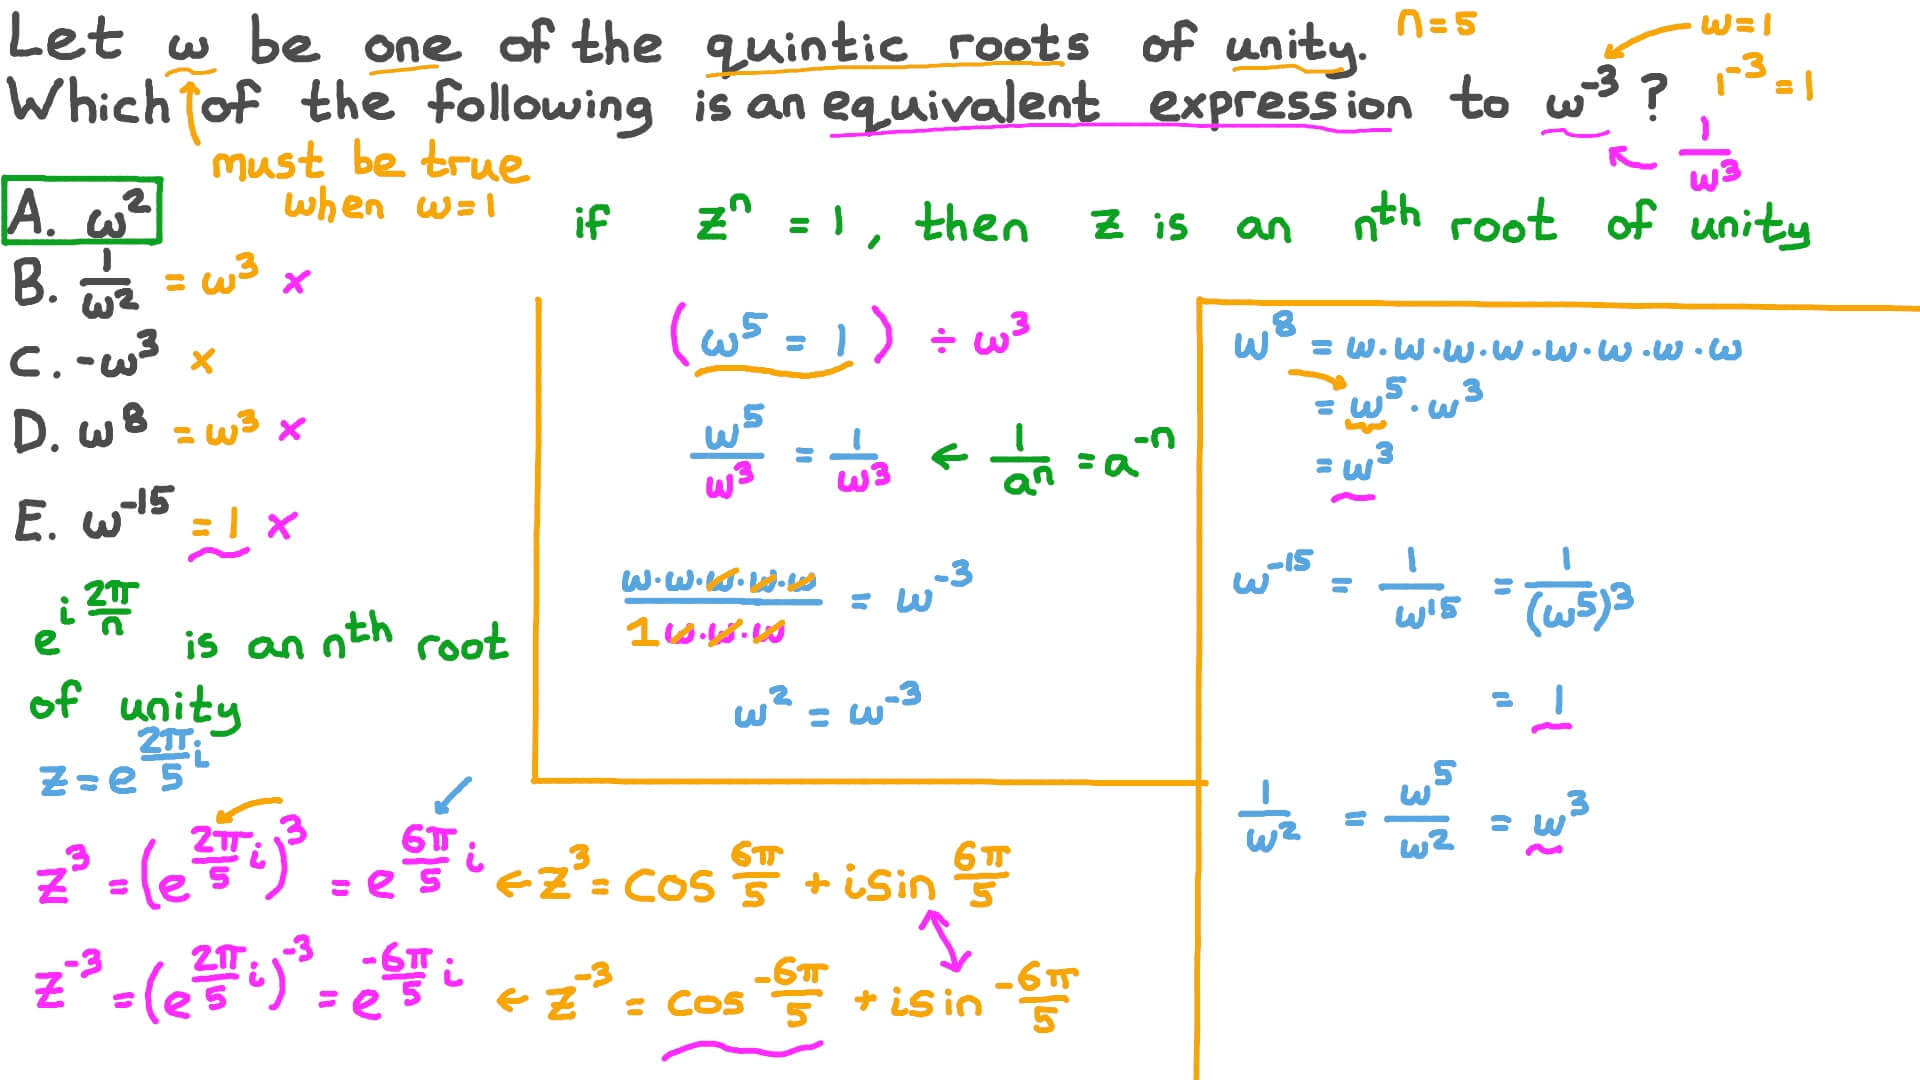 Let ω be one of the quintic roots of unity. n=5 ω=1
Which of the following is an equivalent expression to ω⁻³? 1⁻³=1
must be true
when ω=1
1/ω³
A. ω²
if zⁿ = 1, then z is an nᵗʰ root of unity
B. 1/ω² = ω³ ×
C. -ω³ ×
D. ω⁸ = ω³ ×
E. ω⁻¹⁵ = 1 ×
e^(i 2π/n) is an nᵗʰ root
of unity
z = e^(2π/5 i)
z³ = (e^(2π/5 i))³ = e^(6π/5 i) ← z³ = cos 6π/5 + i sin 6π/5
z⁻³ = (e^(2π/5 i))⁻³ = e^(-6π/5 i) ← z⁻³ = cos -6π/5 + i sin -6π/5
(ω⁵ = 1) ÷ ω³
ω⁵/ω³ = 1/ω³ ← 1/aⁿ = a⁻ⁿ
ω·ω·ω·ω·ω / 1 ω·ω·ω = ω⁻³
ω² = ω⁻³
ω⁸ = ω·ω·ω·ω·ω·ω·ω·ω
= ω⁵·ω³
= ω³
ω⁻¹⁵ = 1/ω¹⁵ = 1/(ω⁵)³
= 1
1/ω² = ω⁵/ω² = ω³